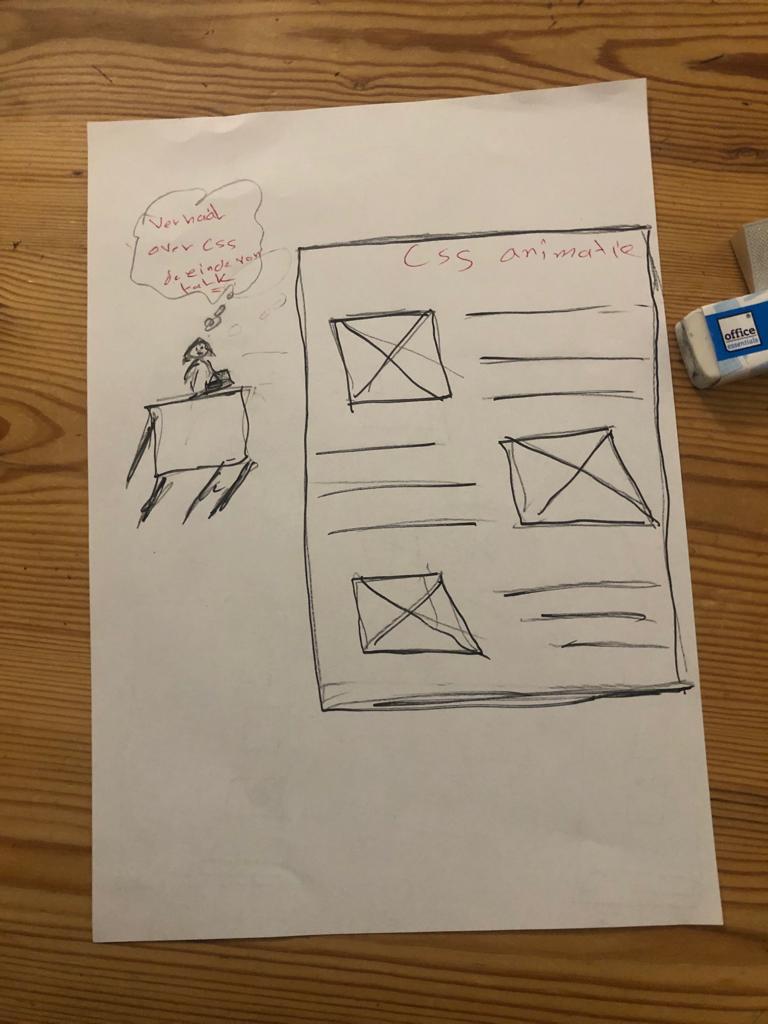 Verhaal
over Css
de einde van
talk
Css animatie
office
essentials